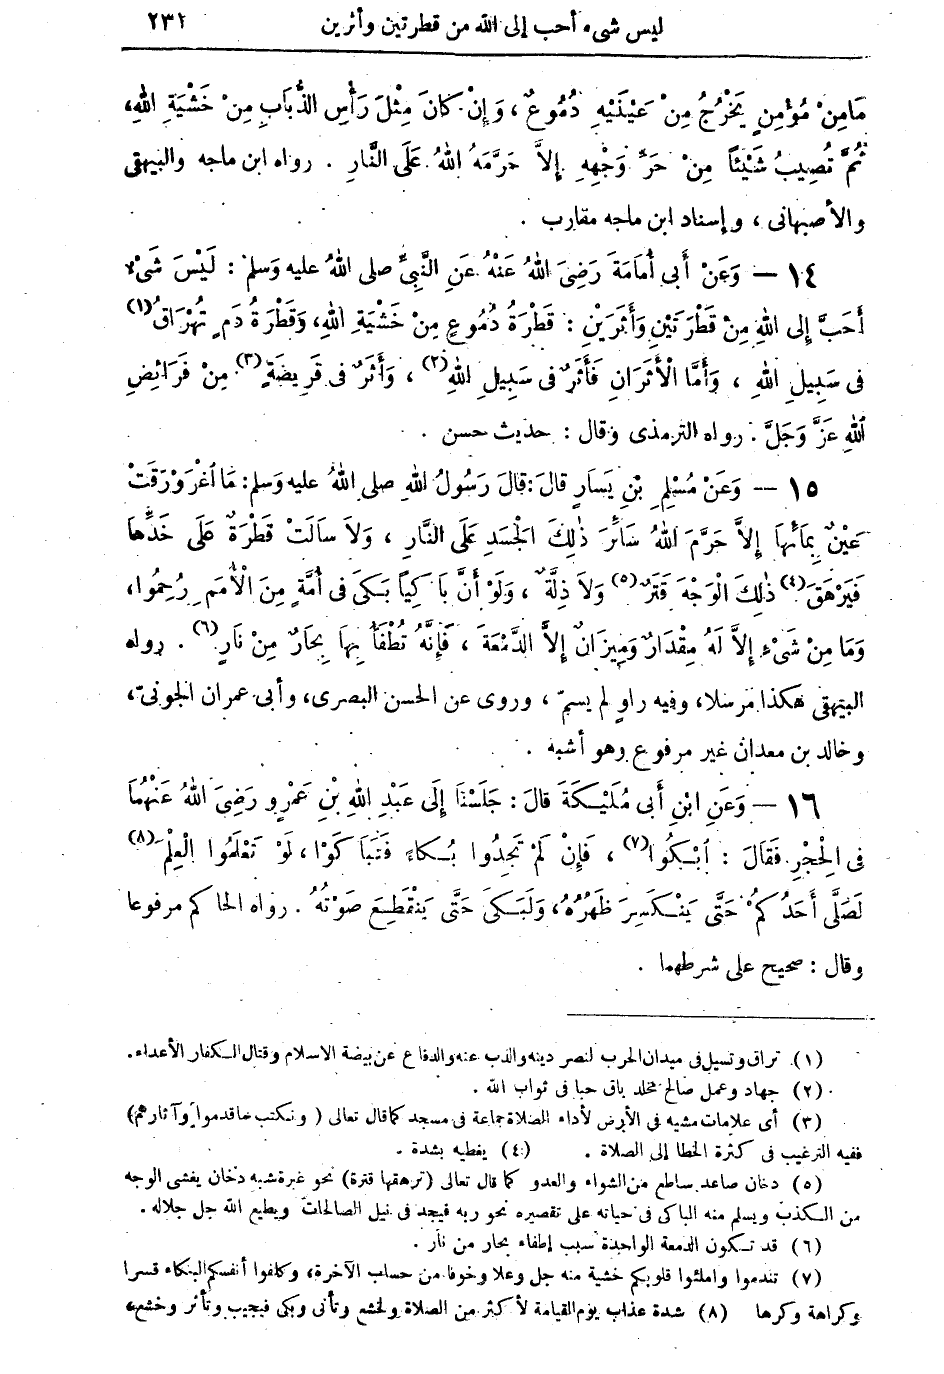 ليس شيء أحب إلى الله من قطرتين وأثرين ٢٣١
مَامِنْ مُؤْمِنٍ يَخْرُجُ مِنْ عَيْنَيْهِ دُمُوعٌ، وَإِنْ كَانَ مِثْلَ رَأْسِ الذُّبَابِ مِنْ خَشْيَةِ اللهِ،
ثُمَّ تُصِيبُ شَيْئاً مِنْ حَرِّ وَجْهِهِ إِلاَّ حَرَّمَهُ اللهُ عَلَى النَّارِ . رواه ابن ماجه والبيهقى
والأصبهانى ، وإسناد ابن ماجه مقارب .
١٤ — وَعَنْ أَبِى أُمَامَةَ رَضِىَ اللهُ عَنْهُ عَنِ النَّبِىِّ صلى اللهُ عليه وَسلم : لَيْسَ شَىْءٌ
أَحَبَّ إِلى اللهِ مِنْ قَطْرَتَيْنِ وَأَثَرَيْنِ : قَطْرَةُ دُمُوعٍ مِنْ خَشْيَةِ اللهِ، وَقَطْرَةُ دَمٍ تُهْرَاقُ(١)
فى سَبِيلِ اللهِ ، وَأَمَّا الْأَثَرَانِ فَأَثَرٌ فى سَبِيلِ اللهِ(٢) ، وَأَثَرٌ فى فَرِيضَةٍ(٣) مِنْ فَرَائِضِ
اللهِ عَزَّ وَجَلَّ . رواه الترمذى وقال : حديث حسن .
١٥ — وَعَنْ مُسْلِمِ بْنِ يَسَارٍ قالَ: قالَ رَسُولُ اللهِ صلى اللهُ عليه وَسلم: مَا اغْرَوْرَقَتْ
عَيْنٌ بِمَائِهَا إِلاَّ حَرَّمَ اللهُ سَائِرَ ذٰلِكَ الْجَسَدِ عَلَى النَّارِ ، وَلاَ سَالَتْ قَطْرَةٌ عَلَى خَدِّهَا
فَيَرْهَقَ(٤) ذٰلِكَ الْوَجْهَ قَتَرٌ(٥) وَلاَ ذِلَّةٌ ، وَلَوْ أَنَّ بَاكِياً بَكَى فى أُمَّةٍ مِنَ الْأُمَمِ رُحِمُوا،
وَمَا مِنْ شَىْءٍ إِلاَّ لَهُ مِقْدَارٌ وَمِيزَانٌ إِلاَّ الدَّمْعَةَ ، فَإِنَّهُ تُطْفَأُ بِهَا بِحَارٌ مِنْ نَارٍ(٦) . رواه
البيهقى هكذا مرسلا، وفيه راوٍ لم يسمّ ، وروى عن الحسن البصرى، وأبى عمران الجونىّ،
وخالد بن معدان غير مرفوع وهو أشبه .
١٦ — وَعَنِ ابْنِ أَبى مُلَيْكَةَ قالَ : جَلَسْنَا إِلَى عَبْدِ اللهِ بْنِ عَمْرٍو رَضِىَ اللهُ عَنْهُمَا
فى الْحِجْرِ فَقَالَ : ابْكُوا(٧) ، فَإِنْ لَمْ تَجِدُوا بُكَاءً فَتَبَاكَوْا ، لَوْ تَعْلَمُوا الْعِلْمَ(٨)
لَصَلَّى أَحَدُكُمْ حَتَّى يَنْكَسِرَ ظَهْرُهُ، وَلَبَكَى حَتَّى يَنْقَطِعَ صَوْتُهُ . رواه الحاكم مرفوعا
وقال : صحيح على شرطهما .
(١) تراق وتسيل فى ميدان الحرب لنصر دينه والذب عنه والدفاع عن بيضة الاسلام وقتال الكفار الأعداء.
(٢) جهاد وعمل صالح مخلد باق حبا فى ثواب الله .
(٣) أى علامات مشيه فى الأرض لأداء الصلاة جماعة فى مسجد كما قال تعالى ( ونكتب ما قدموا وآثارهم)
ففيه الترغيب فى كثرة الخطا إلى الصلاة . (٤) يغطيه بشدة .
(٥) دخان صاعد ساطع من الشواء والعدو كما قال تعالى (ترهقها قترة) نحو غبرة شبه دخان يغشى الوجه
من الكذب ويسلم منه الباكى فى حياته على تقصيره نحو ربه فيجد فى نيل الصالحات ويطيع الله جل جلاله .
(٦) قد تكون الدمعة الواحدة سبب إطفاء بحار من نار .
(٧) تندموا واملئوا قلوبكم خشية منه جل وعلا وخوفا من حساب الآخرة، وكلفوا أنفسكم البكاء قسرا
وكراهة وكرها (٨) شدة عذاب يوم القيامة لأكثر من الصلاة ولخشع وتأنى وبكى فيجيب وتأثر وخشع،